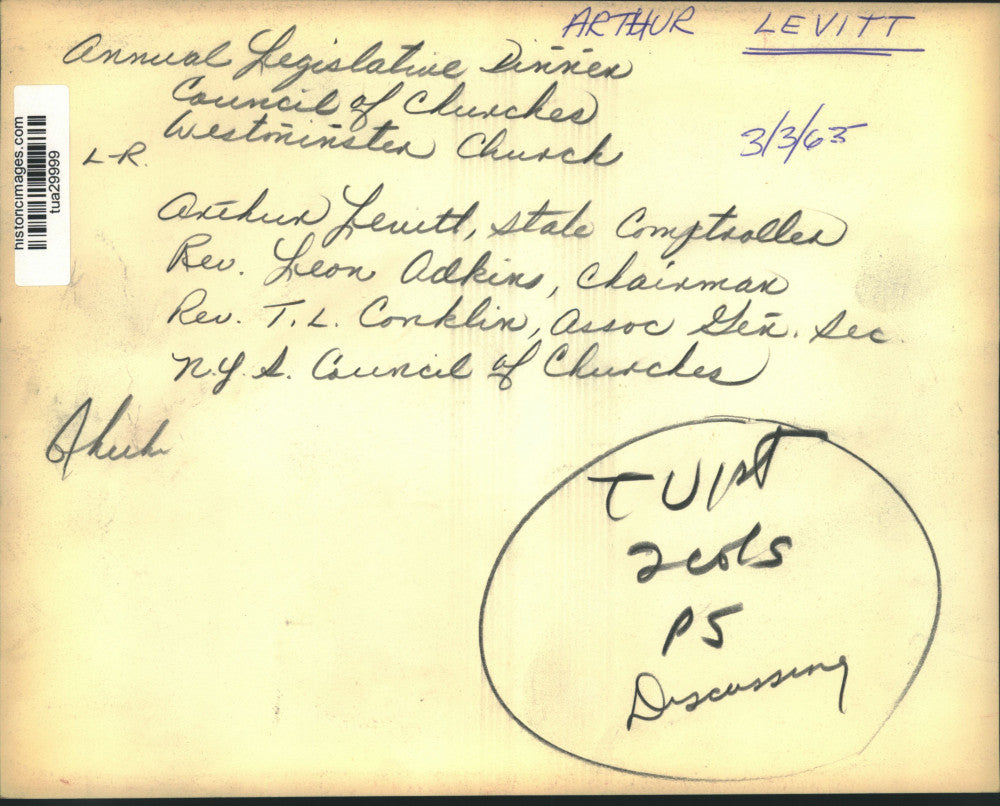 ARTHUR LEVITT
Annual Legislative Dinner
Council of Churches
Westminster Church
3/3/65
L-R.
Arthur Levitt, State Comptroller
Rev. Leon Adkins, Chairman
Rev. T. L. Conklin, Assoc Gen. Sec
N.Y.S. Council of Churches
TU 1st
2 cols
P5
Discussing
historicimages.com
tua29999